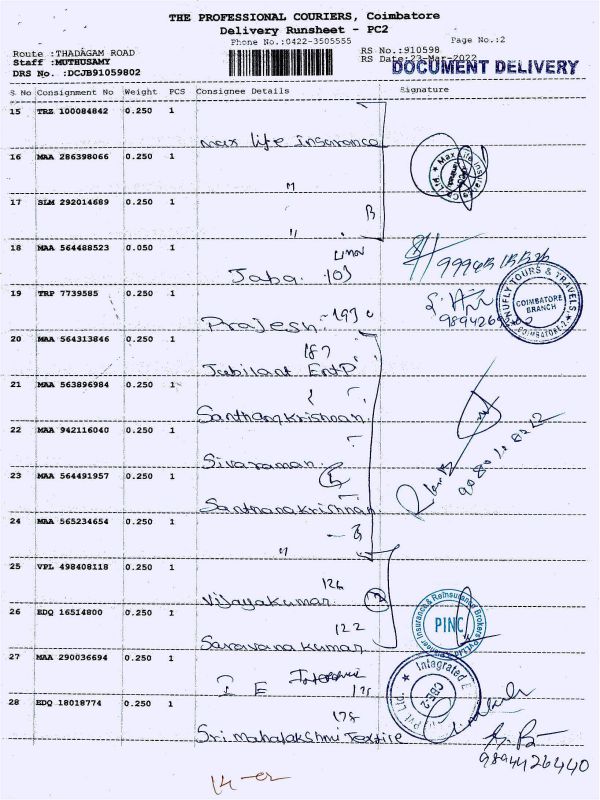 THE PROFESSIONAL COURIERS, Coimbatore
Delivery Runsheet - PC2
Phone No.:0422-3505555 Page No.:2
Route :THADAGAM ROAD RS No.:910598
Staff :MUTHUSAMY RS Date:23-Mar-2022
DRS No. :DCJB91059802 DOCUMENT DELIVERY
S No Consignment No Weight PCS Consignee Details Signature
15 TRZ 100084842 0.250 1
max life insurance
16 MAA 286398066 0.250 1
"
17 SLM 292014689 0.250 1
B
"
18 MAA 564488523 0.050 1
Jaba. 103
19 TRP 7739585 0.250 1
Prajesh. 193
20 MAA 564313846 0.250 1
187
Jubilant EntP
21 MAA 563896984 0.250 1
Santhamkrishnan
22 MAA 942116040 0.250 1
Sivaraman.
23 MAA 564491957 0.250 1
5
Santhanakrishnan
24 MAA 565234654 0.250 1
"
25 VPL 498408118 0.250 1
126
Vijayakumar 2
26 EDQ 16514800 0.250 1
122
Saravana kumar
27 MAA 290036694 0.250 1
I E
28 EDQ 18018774 0.250 1
178
Sri mahalakshmi Textile
Max Life Insurance
UNIFLY TOURS & TRAVELS
COIMBATORE
BRANCH
COIMBATORE-2
Insurance & Reinsurance Brokers Pvt Ltd
PINC
Integrated E
CBE-2
PVT. LTD.
9894426440